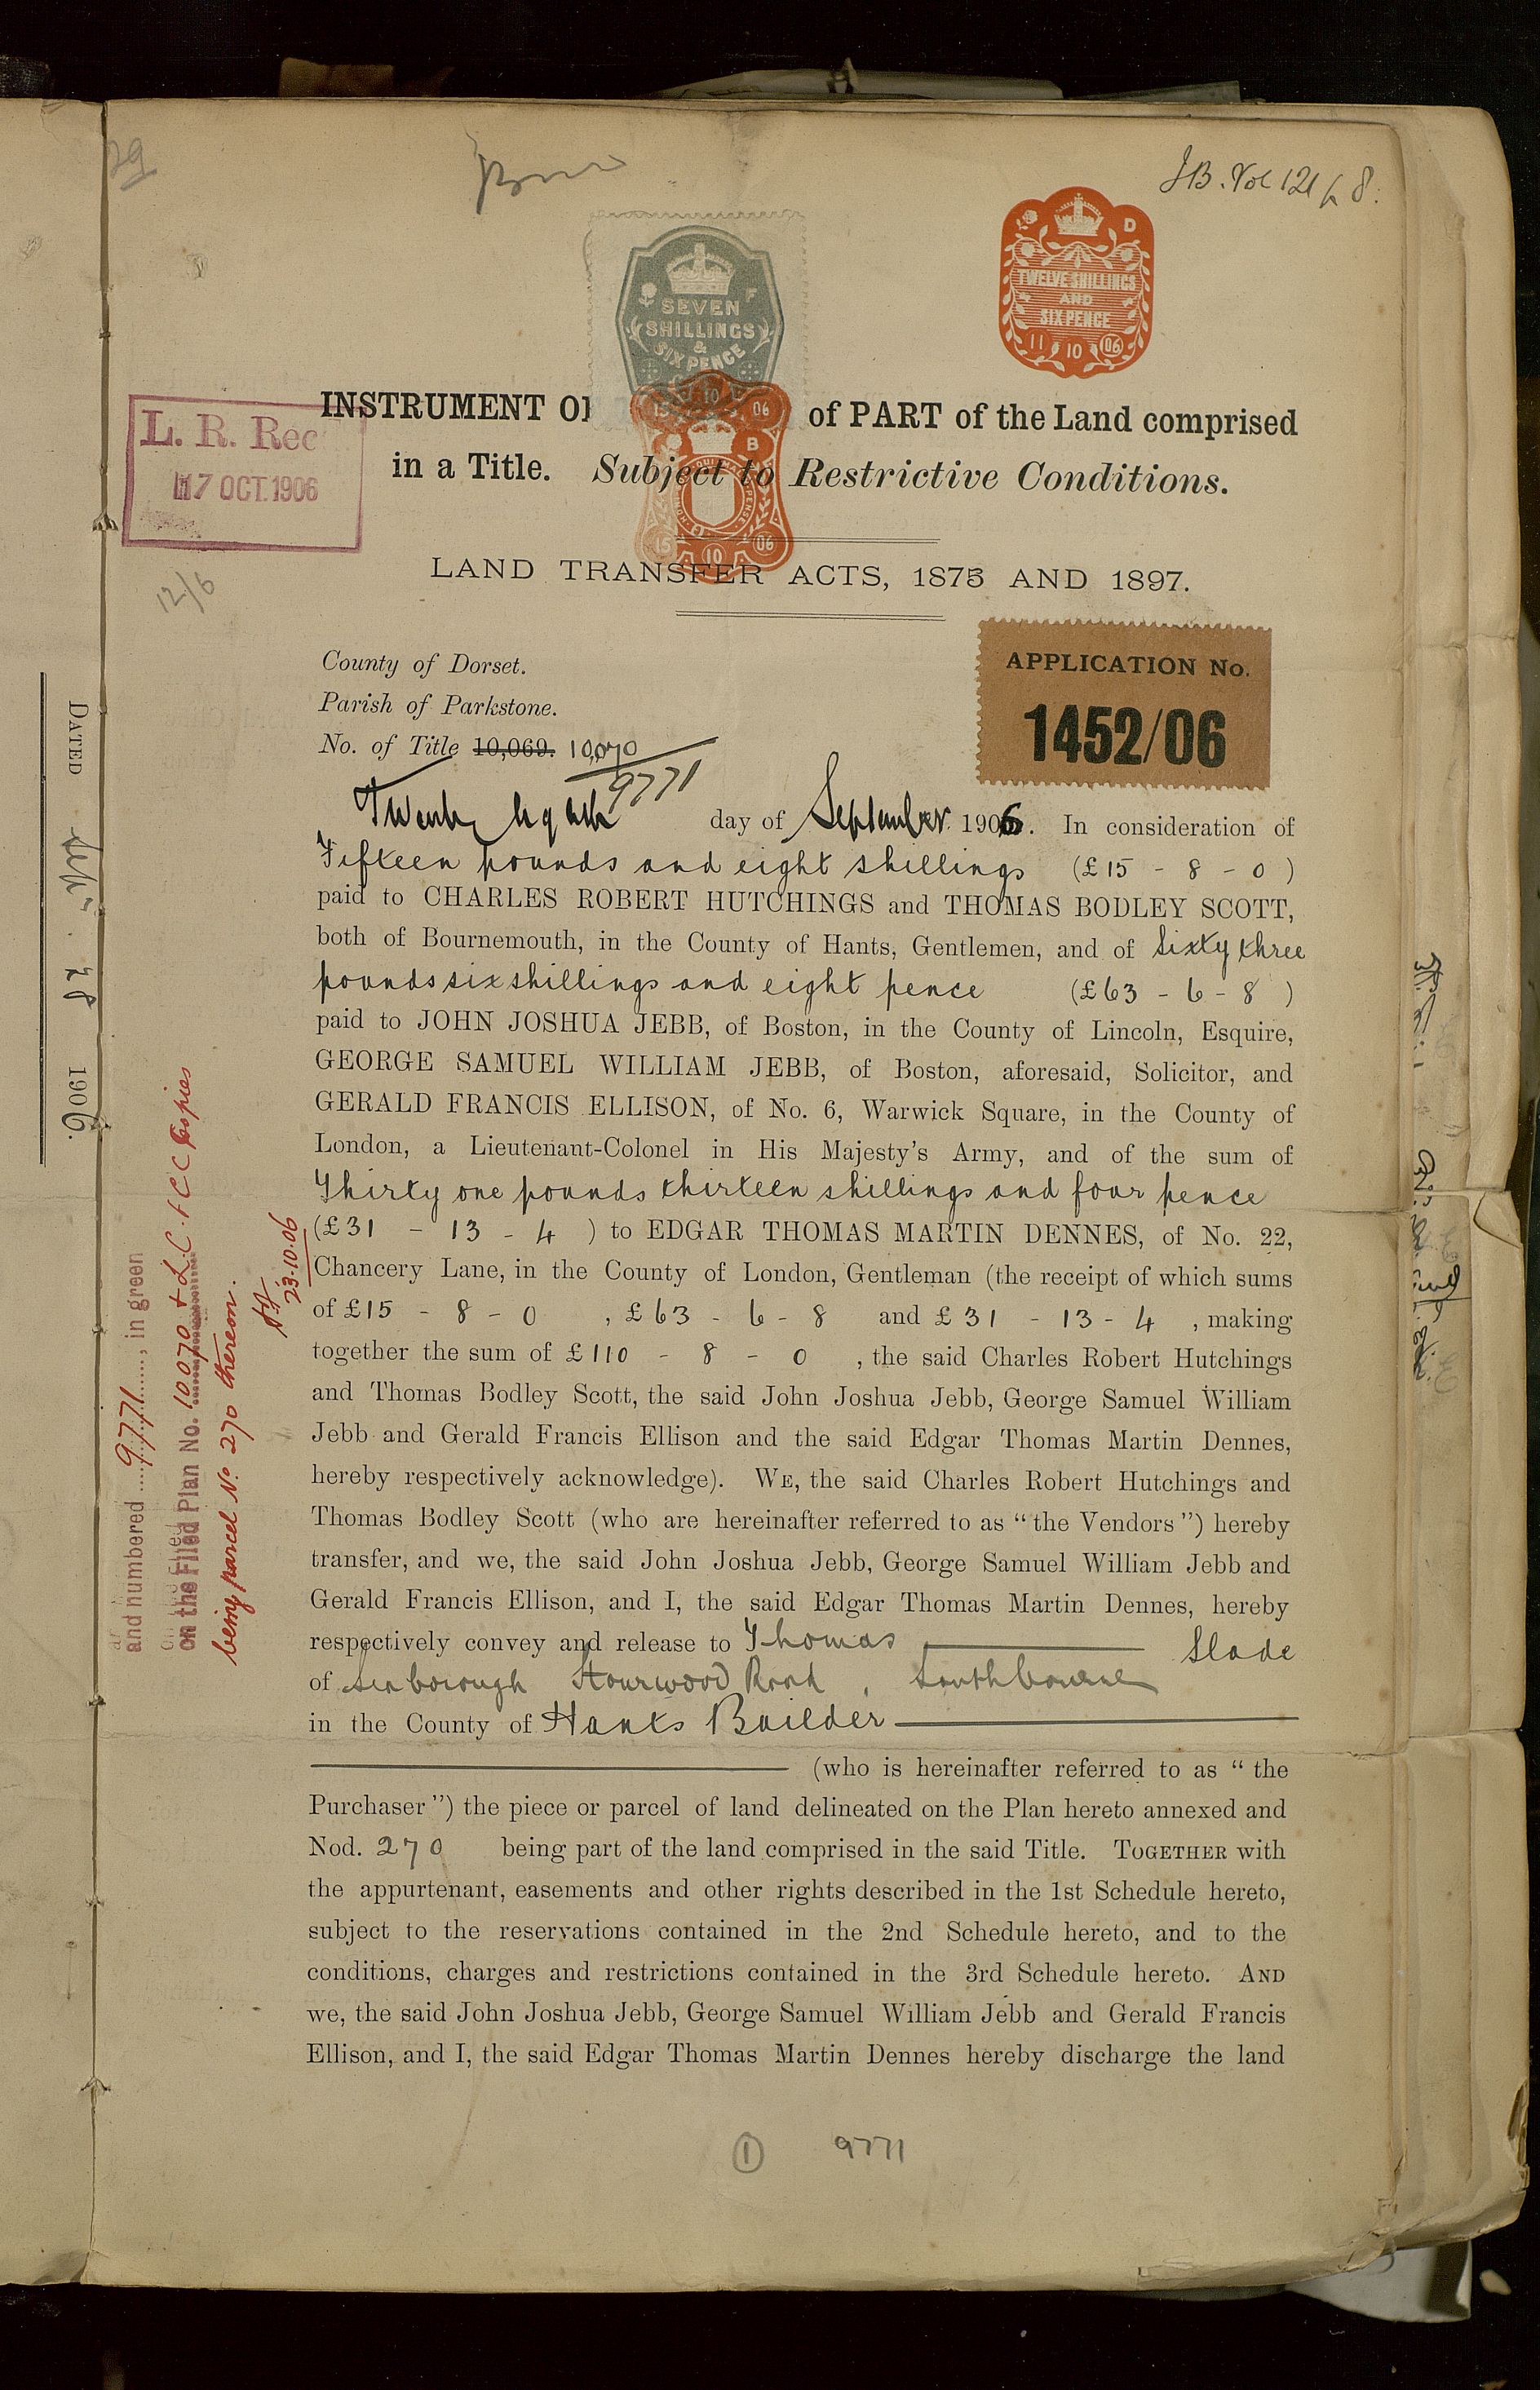 29
J.B. Vol 121 p 8.
SEVEN
SHILLINGS
&
SIXPENCE
F
D
TWELVE SHILLINGS
AND
SIX PENCE
11 10 06
INSTRUMENT OF
of PART of the Land comprised
in a Title. Subject to Restrictive Conditions.
15 10 06
B
15 10 06
L. R. Rec
17 OCT. 1906
12/6
LAND TRANSFER ACTS, 1875 AND 1897.
APPLICATION No.
1452/06
County of Dorset.
Parish of Parkstone.
No. of Title 10,069. 10,070
9771
Twenty eighth day of September 1906. In consideration of
Fifteen pounds and eight shillings (£15 - 8 - 0)
paid to CHARLES ROBERT HUTCHINGS and THOMAS BODLEY SCOTT,
both of Bournemouth, in the County of Hants, Gentlemen, and of Sixty three
pounds six shillings and eight pence (£63 - 6 - 8)
paid to JOHN JOSHUA JEBB, of Boston, in the County of Lincoln, Esquire,
GEORGE SAMUEL WILLIAM JEBB, of Boston, aforesaid, Solicitor, and
GERALD FRANCIS ELLISON, of No. 6, Warwick Square, in the County of
London, a Lieutenant-Colonel in His Majesty's Army, and of the sum of
Thirty one pounds thirteen shillings and four pence
(£31 - 13 - 4) to EDGAR THOMAS MARTIN DENNES, of No. 22,
Chancery Lane, in the County of London, Gentleman (the receipt of which sums
of £15 - 8 - 0, £63 - 6 - 8 and £31 - 13 - 4, making
together the sum of £110 - 8 - 0, the said Charles Robert Hutchings
and Thomas Bodley Scott, the said John Joshua Jebb, George Samuel William
Jebb and Gerald Francis Ellison and the said Edgar Thomas Martin Dennes,
hereby respectively acknowledge). WE, the said Charles Robert Hutchings and
Thomas Bodley Scott (who are hereinafter referred to as "the Vendors") hereby
transfer, and we, the said John Joshua Jebb, George Samuel William Jebb and
Gerald Francis Ellison, and I, the said Edgar Thomas Martin Dennes, hereby
respectively convey and release to Thomas Slade
of Seaborough Stourwood Road, Southbourne
in the County of Hants Builder
(who is hereinafter referred to as "the
Purchaser") the piece or parcel of land delineated on the Plan hereto annexed and
Nod. 270 being part of the land comprised in the said Title. TOGETHER with
the appurtenant, easements and other rights described in the 1st Schedule hereto,
subject to the reservations contained in the 2nd Schedule hereto, and to the
conditions, charges and restrictions contained in the 3rd Schedule hereto. AND
we, the said John Joshua Jebb, George Samuel William Jebb and Gerald Francis
Ellison, and I, the said Edgar Thomas Martin Dennes hereby discharge the land
1 9771
DATED Sept. 28 1906.
and numbered 9771, in green
on the Filed Plan No. 10070 & L.C. & C C Copies
being parcel No. 270 thereon.
23.10.06